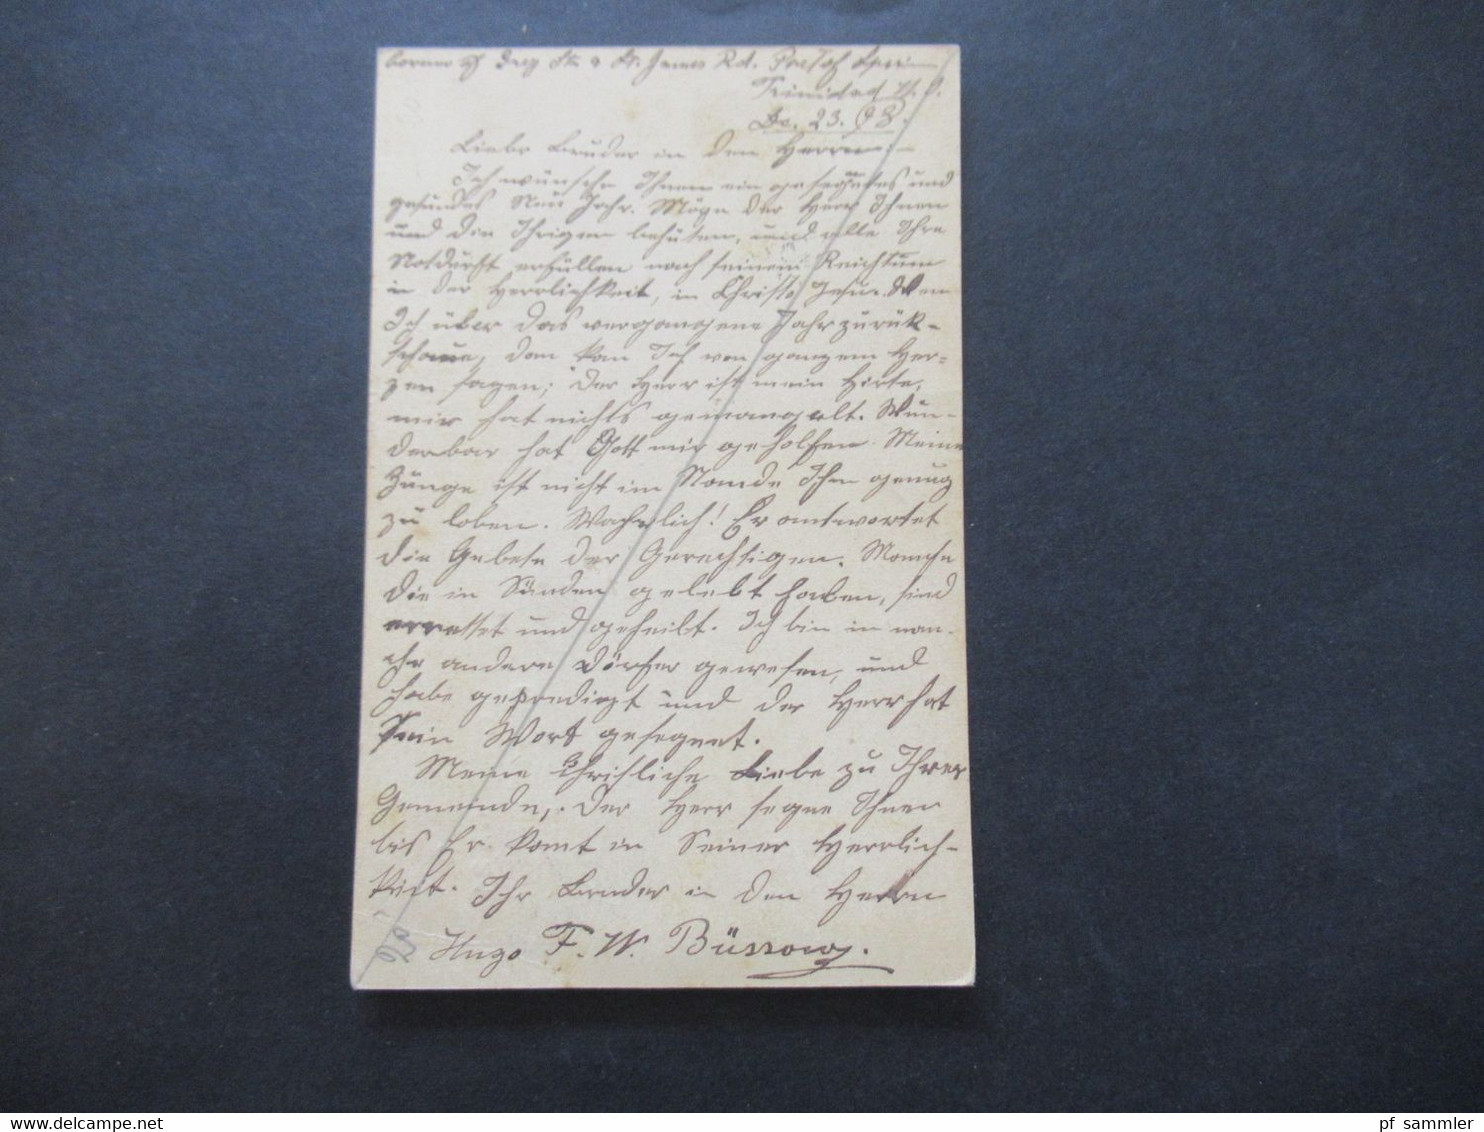 Corner of Gray St. & St. James Rd. Port of Spain
Trinidad W. I.
De. 23. 98.
Liebe Bruder in dem Herrn:—
Ich wünsche Ihnen ein gesegnetes und
gesundes Neu Jahr. Möge der Herr Ihnen
und die Ihrigen behüten, und alle Ihre
Notdurft erfüllen nach seinem Reichtum
in der Herrlichkeit, in Christo Jesu. Wen
Ich über das vergangene Jahr zurük-
schaue, dan kan Ich von ganzem Her-
zen sagen; Der Herr ist mein Hirte,
mir hat nichts gemangelt. Wun-
derbar hat Gott mir geholfen. Meine
Zunge ist nicht im Stande Ihn genug
zu loben. Wahrlich! Er antwortet
die Gebete der Gerechtigen. Manche
die in Sünden gelebt haben, sind
errettet und geheilt. Ich bin in man-
che andere Dörfer gewesen, und
habe gepredigt und der Herr hat
Sein Wort gesegnet.
Meine Christliche Liebe zu Ihrer
Gemeinde, Der Herr segne Ihnen
bis Er komt in Seiner Herrlich-
keit. Ihr Bruder in dem Herrn
Hugo F. W. Büssow.
pf sammler
www.delcampe.net